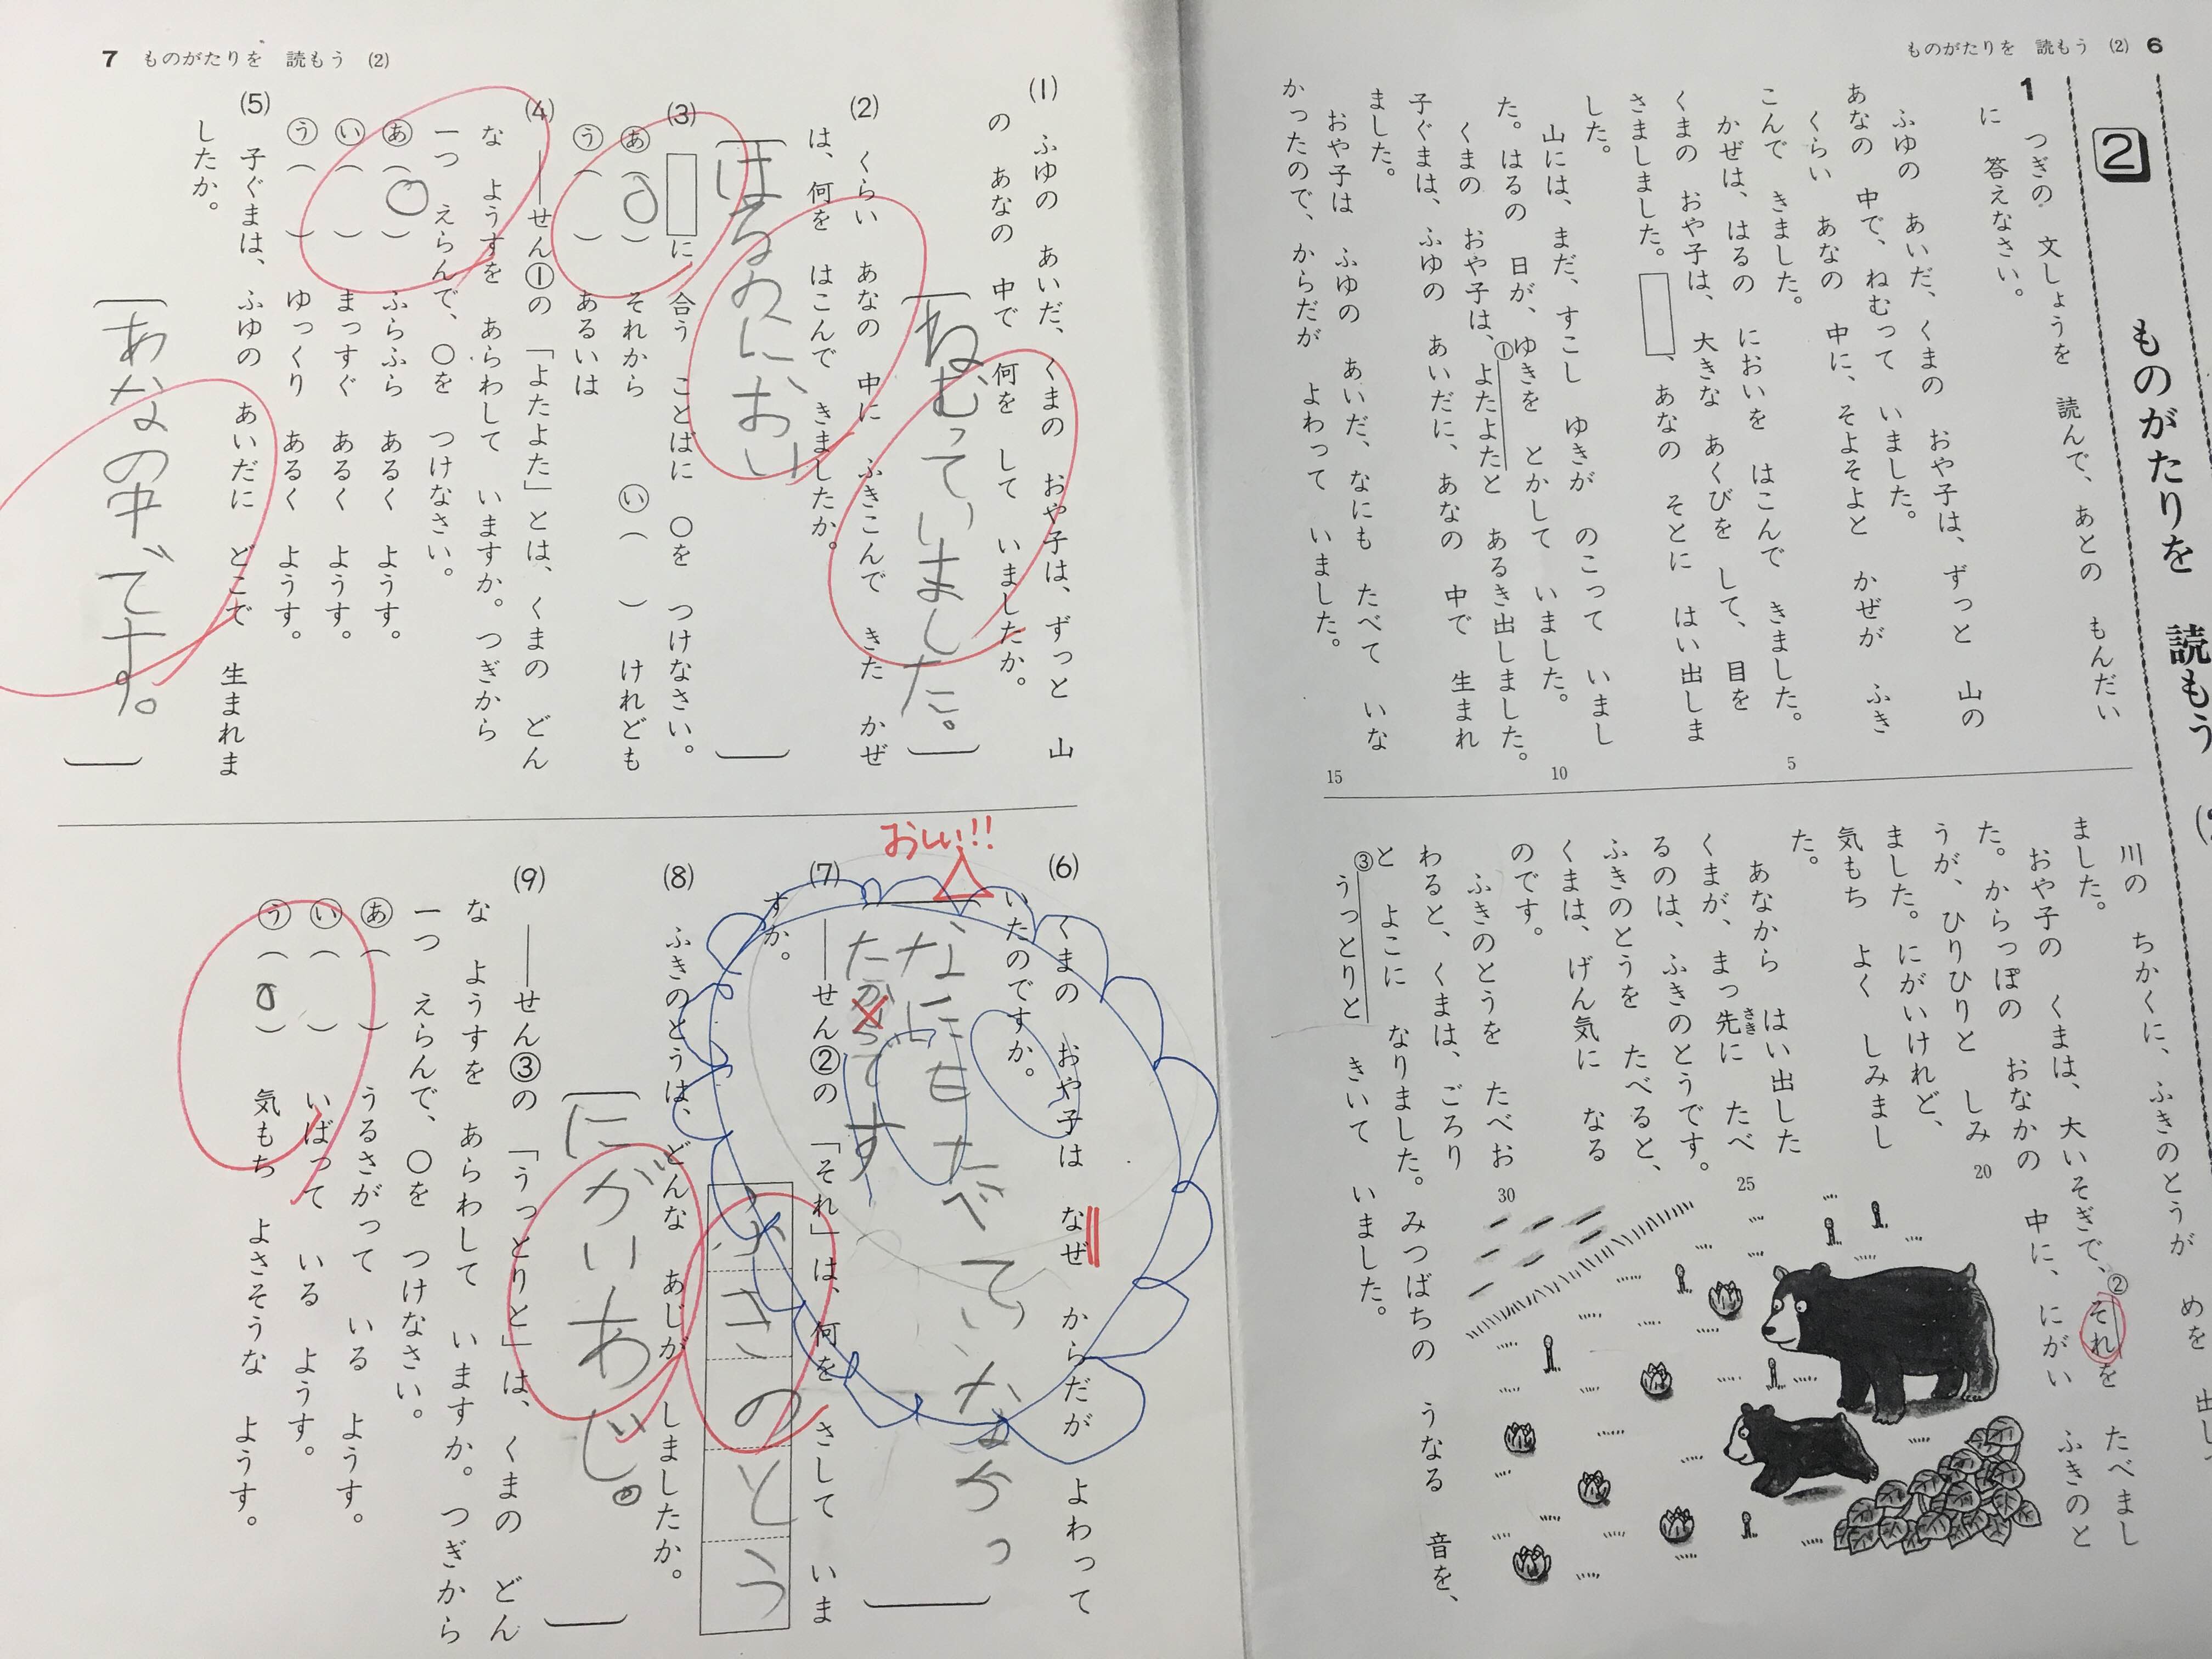 ものがたりを 読もう (2) 6
2 ものがたりを 読もう
1 つぎの 文しょうを 読んで、あとの もんだい
に 答えなさい。
ふゆの あいだ、くまの おや子は、ずっと 山の
あなの 中で、ねむって いました。
くらい あなの 中に、そよそよと かぜが ふき
こんで きました。
かぜは、はるの においを はこんで きました。
5
くまの おや子は、大きな あくびを して、目を
さましました。 、あなの そとに はい出しま
した。
山には、まだ、すこし ゆきが のこって いまし
た。はるの 日が、ゆきを とかして いました。
10
くまの おや子は、①よたよたと あるき出しました。
子ぐまは、ふゆの あいだに、あなの 中で 生まれ
ました。
おや子は ふゆの あいだ、なにも たべて いな
かったので、からだが よわって いました。
15
川の ちかくに、ふきのとうが めを 出し
ました。
おや子の くまは、大いそぎで、②それを たべまし
た。からっぽの おなかの 中に、にがい ふきのと
うが、ひりひりと しみ
20
ました。にがいけれど、
気もち よく しみまし
た。
あなから はい出した
くまが、まっ先に たべ
さき
25
るのは、ふきのとうです。
ふきのとうを たべると、
くまは、げん気に なる
のです。
ふきのとうを たべお
30
わると、くまは、ごろり
と よこに なりました。みつばちの うなる 音を、
③うっとりと きいて いました。
7 ものがたりを 読もう (2)
(1) ふゆの あいだ、くまの おや子は、ずっと 山
の あなの 中で 何を して いましたか。
ねむっていました。
(2) くらい あなの 中に ふきこんで きた かぜ
は、何を はこんで きましたか。
はるのにおい
(3) に 合う ことばに ○を つけなさい。
あ( ○ ) それから い( ) けれども
う( ) あるいは
(4) ――せん①の 「よたよた」とは、くまの どん
な ようすを あらわして いますか。つぎから
一つ えらんで、○を つけなさい。
あ( ○ ) ふらふら あるく ようす。
い( ) まっすぐ あるく ようす。
う( ) ゆっくり あるく ようす。
(5) 子ぐまは、ふゆの あいだに どこで 生まれま
したか。
あなの中です。
(6) くまの おや子は なぜ からだが よわって
いたのですか。
おしい!!
なにもたべていなかっ
たからです
(7) ――せん②の 「それ」は、何を さして いま
すか。
ふきのとう
(8) ふきのとうは、どんな あじが しましたか。
にがいあじ。
(9) ――せん③の 「うっとりと」は、くまの どん
な ようすを あらわして いますか。つぎから
一つ えらんで、○を つけなさい。
あ( ) うるさがって いる ようす。
い( ) いばって いる ようす。
う( ○ ) 気もち よさそうな ようす。